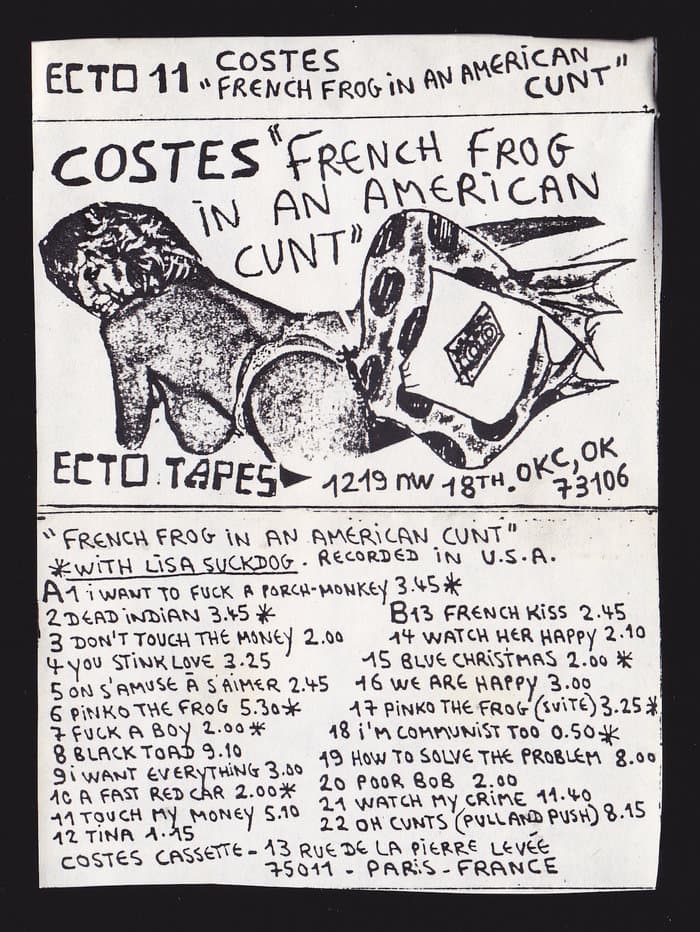 ECTO 11 COSTES
"FRENCH FROG iN AN AMERiCAN CUNT"
COSTES "FRENCH FROG
iN AN AMERiCAN
CUNT"
ECTO TAPES 1219 NW 18TH. OKC, OK
73106
"FRENCH FROG iN AN AMERiCAN CUNT"
*WiTH LiSA SUCKDOG. RECORDED iN U.S.A.
A1 i WANT TO FUCK A PORCH-MONKEY 3.45*
2 DEAD iNDiAN 3.45*
3 DON'T TOUCH THE MONEY 2.00
4 YOU STiNK LOVE 3.25
5 ON S'AMUSE À S'AiMER 2.45
6 PiNKO THE FROG 5.30*
7 FUCK A BOY 2.00*
8 BLACK TOAD 9.10
9 i WANT EVERYTHiNG 3.00
10 A FAST RED CAR 2.00*
11 TOUCH MY MONEY 5.10
12 TiNA 1.15
B13 FRENCH KiSS 2.45
14 WATCH HER HAPPY 2.10
15 BLUE CHRiSTMAS 2.00*
16 WE ARE HAPPY 3.00
17 PiNKO THE FROG (SUiTE) 3.25*
18 i'M COMMUNiST TOO 0.50*
19 HOW TO SOLVE THE PROBLEM 8.00
20 POOR BOB 2.00
21 WATCH MY CRiME 11.40
22 OH CUNTS (PULL AND PUSH) 8.15
COSTES CASSETTE - 13 RUE DE LA PiERRE LEVÉE
75011 - PARiS - FRANCE